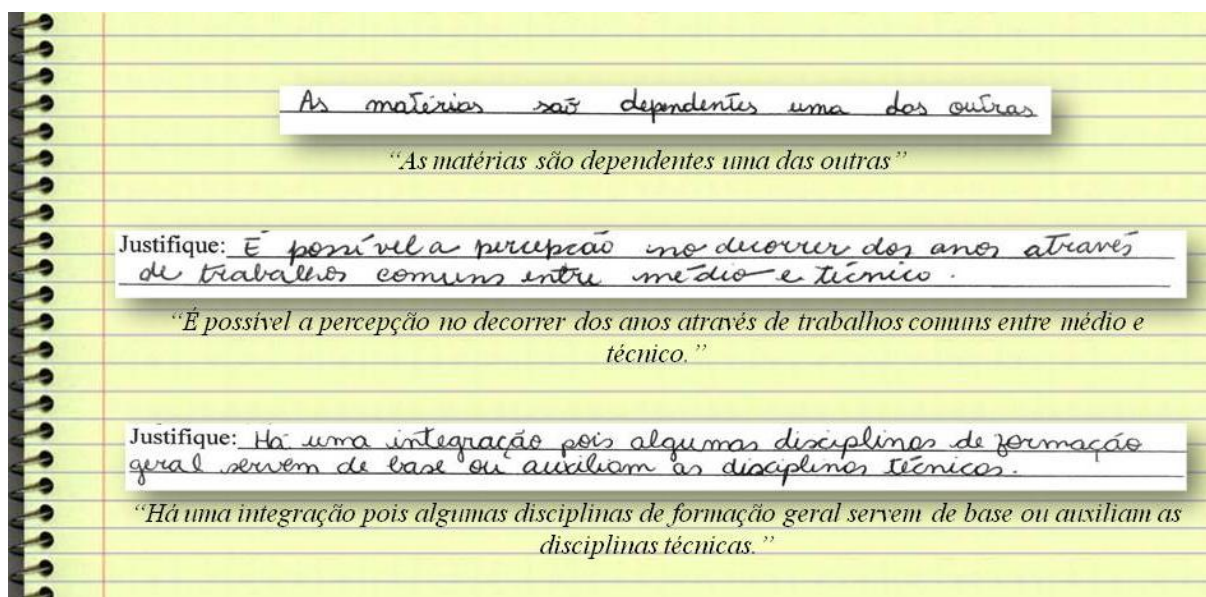 As matérias são dependentes uma das outras
“As matérias são dependentes uma das outras”
Justifique: É possível a percepção no decorrer dos anos através
de trabalhos comuns entre médio e técnico.
“É possível a percepção no decorrer dos anos através de trabalhos comuns entre médio e
técnico.”
Justifique: Há uma integração pois algumas disciplinas de formação
geral servem de base ou auxiliam as disciplinas técnicas.
“Há uma integração pois algumas disciplinas de formação geral servem de base ou auxiliam as
disciplinas técnicas.”